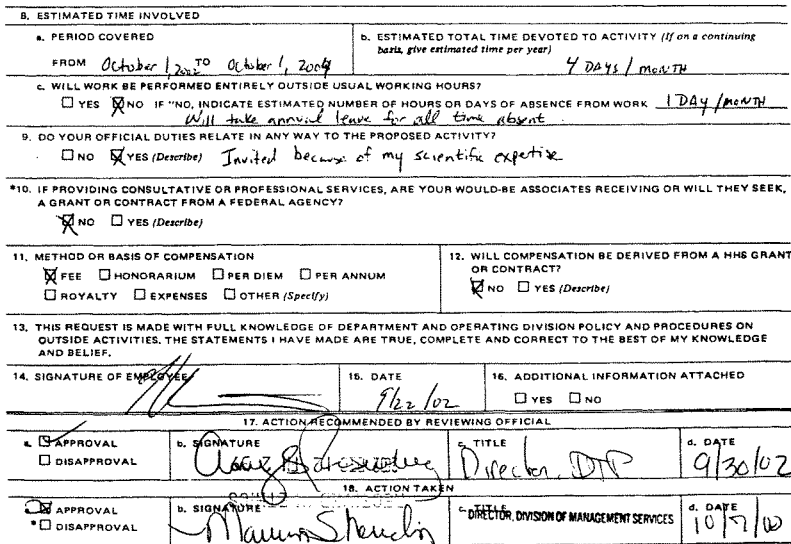 8. ESTIMATED TIME INVOLVED
a. PERIOD COVERED
FROM October 1, 2002 TO October 1, 2004
b. ESTIMATED TOTAL TIME DEVOTED TO ACTIVITY (If on a continuing
basis, give estimated time per year)
4 DAYS / MONTH
c. WILL WORK BE PERFORMED ENTIRELY OUTSIDE USUAL WORKING HOURS?
YES NO IF "NO, INDICATE ESTIMATED NUMBER OF HOURS OR DAYS OF ABSENCE FROM WORK 1 DAY / MONTH
Will take annual leave for all time absent
9. DO YOUR OFFICIAL DUTIES RELATE IN ANY WAY TO THE PROPOSED ACTIVITY?
NO YES (Describe) Invited because of my scientific expertise
*10. IF PROVIDING CONSULTATIVE OR PROFESSIONAL SERVICES, ARE YOUR WOULD-BE ASSOCIATES RECEIVING OR WILL THEY SEEK,
A GRANT OR CONTRACT FROM A FEDERAL AGENCY?
NO YES (Describe)
11. METHOD OR BASIS OF COMPENSATION
FEE HONORARIUM PER DIEM PER ANNUM
ROYALTY EXPENSES OTHER (Specify)
12. WILL COMPENSATION BE DERIVED FROM A HHS GRANT
OR CONTRACT?
NO YES (Describe)
13. THIS REQUEST IS MADE WITH FULL KNOWLEDGE OF DEPARTMENT AND OPERATING DIVISION POLICY AND PROCEDURES ON
OUTSIDE ACTIVITIES. THE STATEMENTS I HAVE MADE ARE TRUE, COMPLETE AND CORRECT TO THE BEST OF MY KNOWLEDGE
AND BELIEF.
14. SIGNATURE OF EMPLOYEE
15. DATE
9/22/02
16. ADDITIONAL INFORMATION ATTACHED
YES NO
17. ACTION RECOMMENDED BY REVIEWING OFFICIAL
a. APPROVAL
DISAPPROVAL
b. SIGNATURE
c. TITLE
Director, DTP
d. DATE
9/30/02
18. ACTION TAKEN
APPROVAL
*DISAPPROVAL
b. SIGNATURE
c. TITLE
DIRECTOR, DIVISION OF MANAGEMENT SERVICES
d. DATE